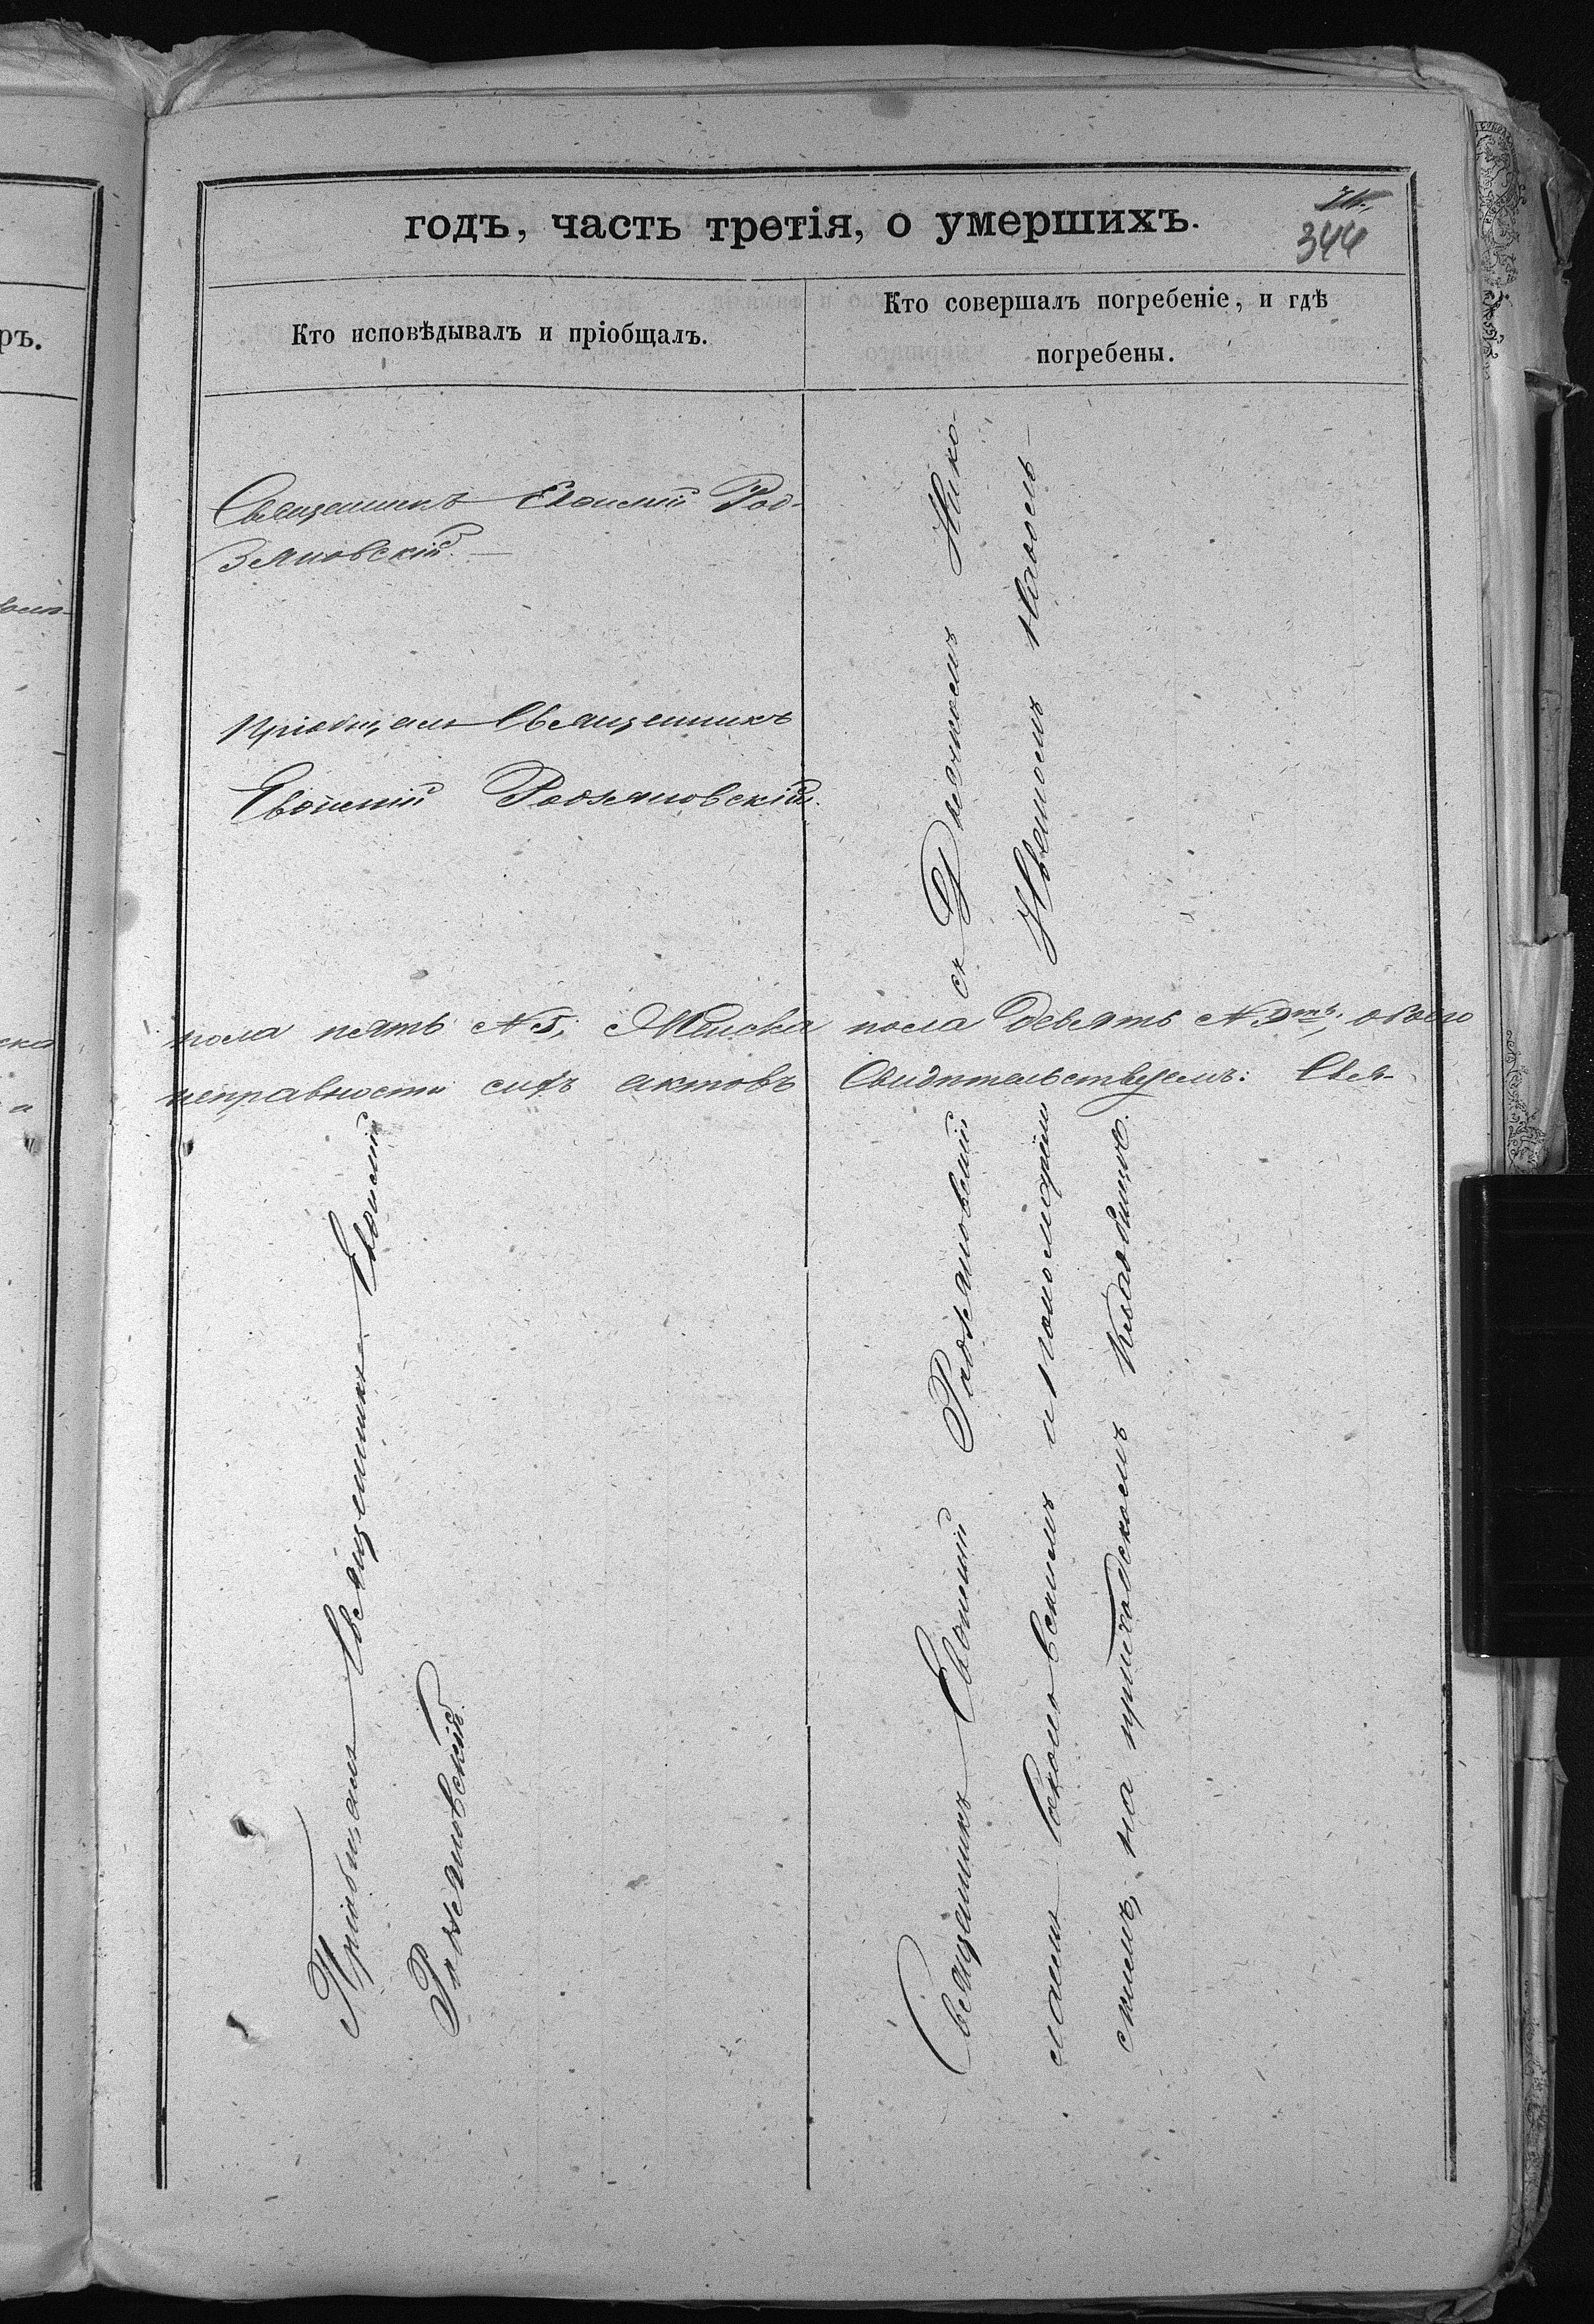 годъ, часть третія, о умершихъ.
344
Кто исповѣдывалъ и пріобщалъ.
Кто совершалъ погребеніе, и гдѣ
погребены.
Священникъ Евѳимій Род-
зяновскій.
Пріобщалъ Священникъ
Евѳимій Родзяновскій.
съ Діячкомъ Нико-
Ивашомъ
пола пять №5, Женска пола девять №9ть, обоего
исправности сихъ актовъ Свидѣтельствуемъ: Свя-
Пріобщалъ Священникъ Евѳимій
Родзяновскій.
Священникъ Евѳимій Родзяновскій
лаемъ и пономаремъ
скимъ, на приходскомъ кладбищѣ.
ръ.